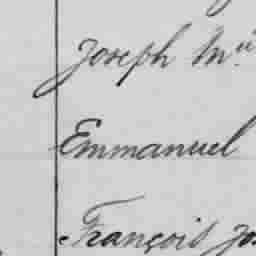 Joseph M.u
Emmanuel
François Jo